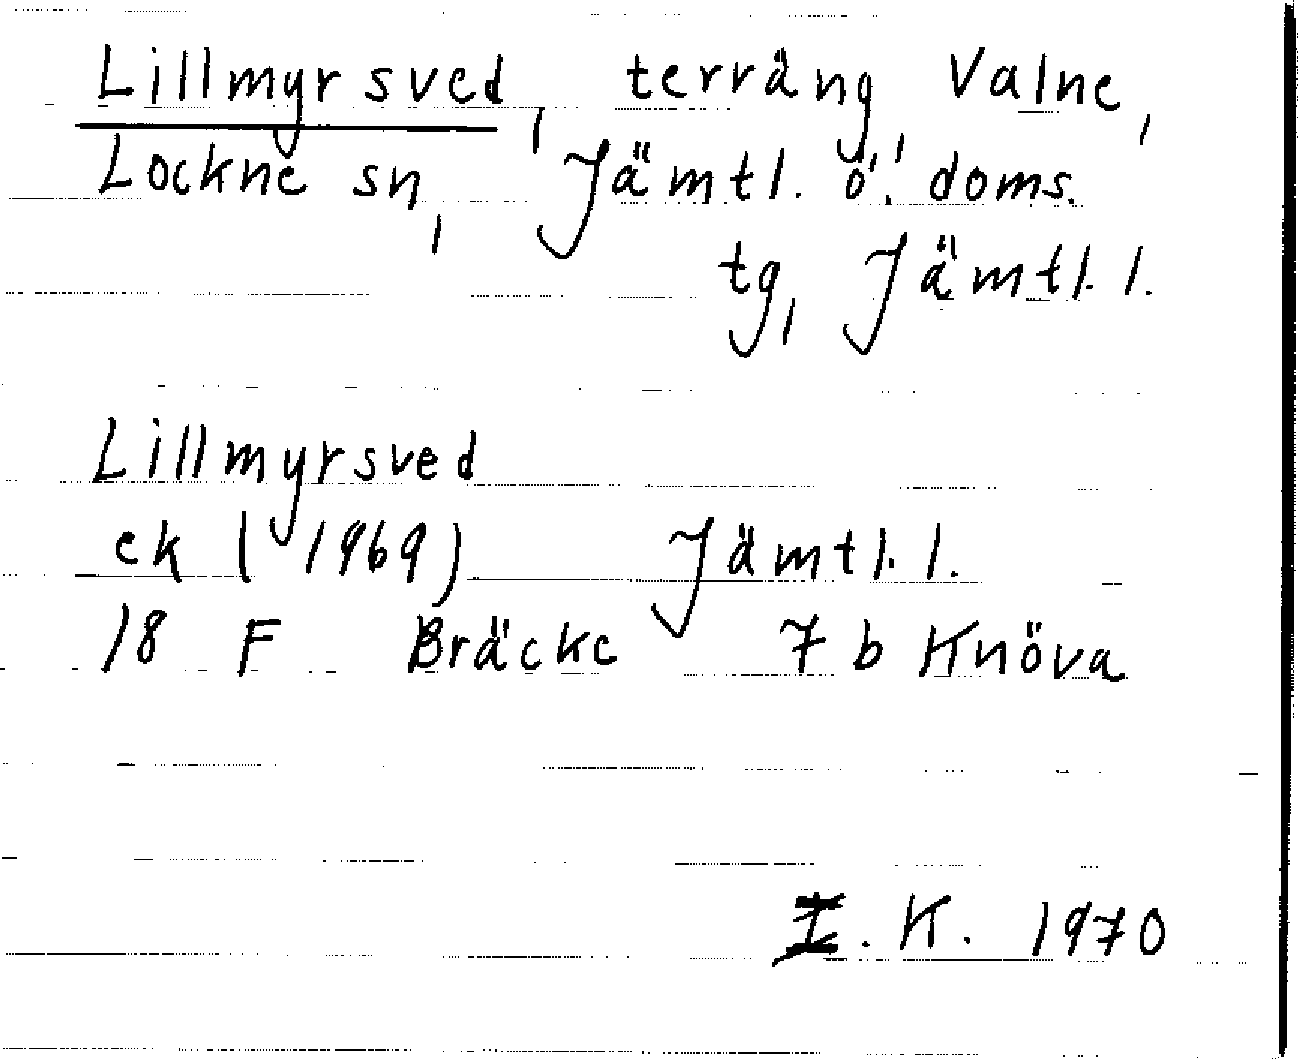 Lillmyrsved, terräng Valne,
Lockne sn, Jämtl. ö. doms.
tg, Jämtl. l.
Lillmyrsved
ek (1969) Jämtl. l.
18 F Bräcke 7 b Knöva
I. K. 1970